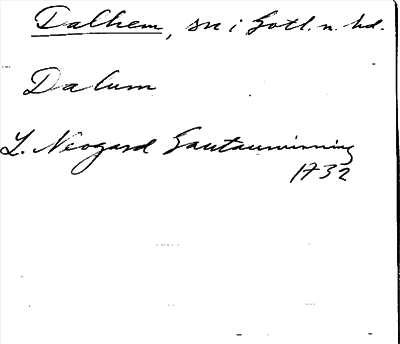 Dalhem, sn i Gotl. n. hd.
Dalum
L. Neogard Gautauminning
1732